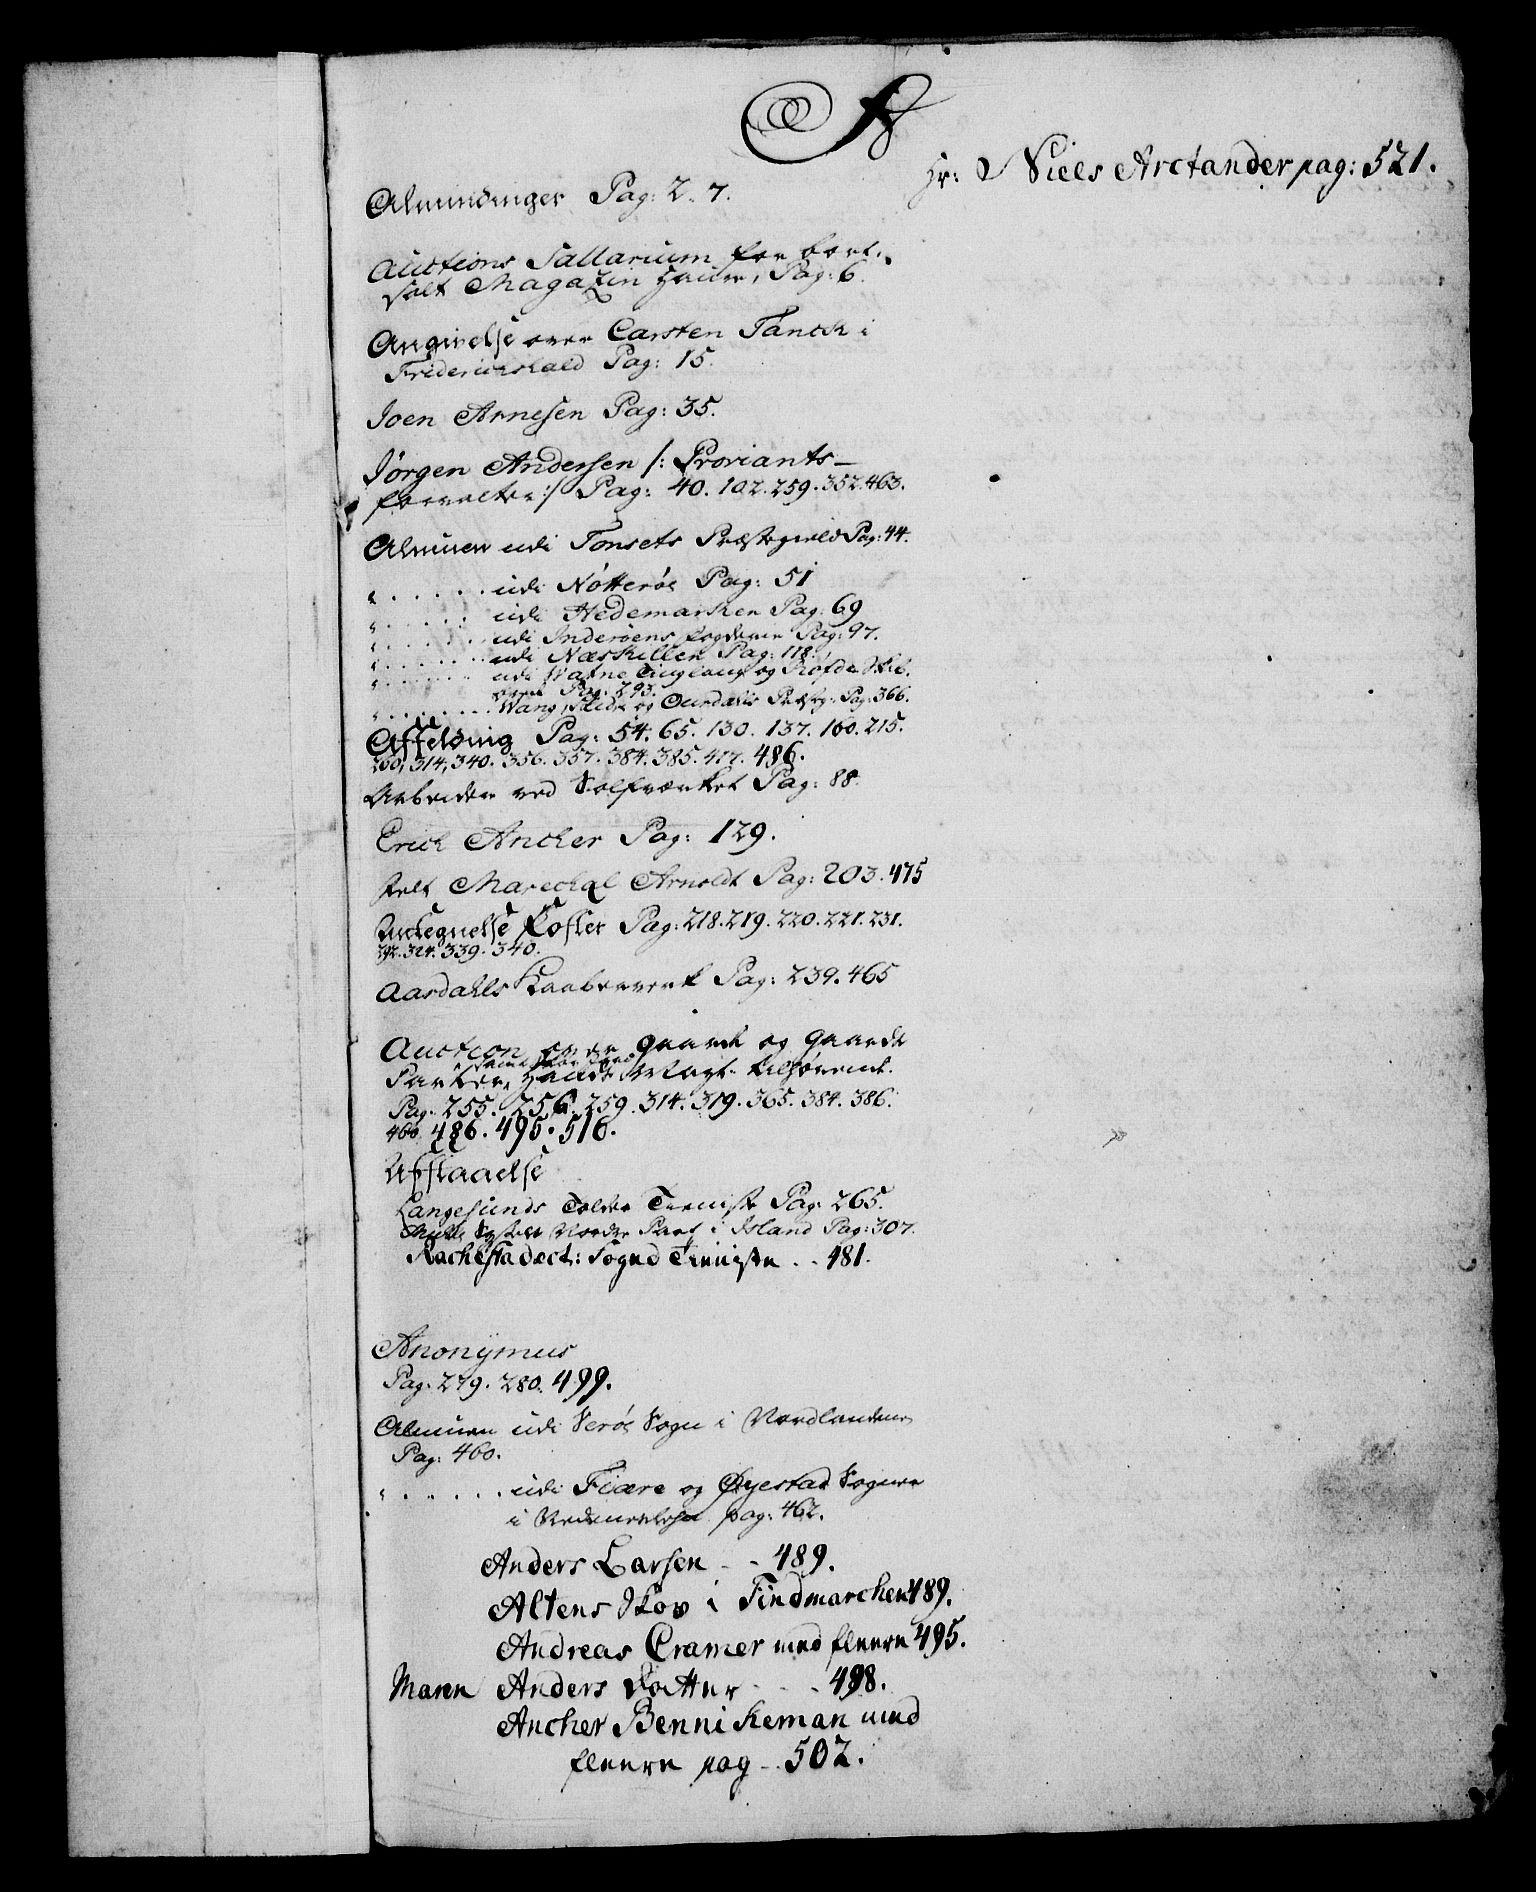 A
Hr: Niels Arctander pag: 521.
Almindinger Pag: 2. 7.
Auctions Sallarium for bort-
salt Magazin Pag: 6.
Angivelse over Carsten Tanck i
Friderichshald Pag: 15.
Joen Arnesen Pag: 35.
Jörgen Andersen /: Proviants-
forvalter :/ Pag: 40. 102. 259. 352. 463.
Almuen udi Tonsets Præstegield Pag: 44.
" . . . . . . udi Nötteröe Pag: 51
" . . . . . . udi Hedemarken Pag: 69
" . . . . . . udi Inderöens fogderie Pag: 97.
" . . . . . . udi Næskillen Pag: 118.
" . . . . . . udi Warne Tinglaug og
Pag: 293.
" . . . . . . Wang, Slidre og Ourdahls Præsteg: Pag: 366.
Affelding Pag: 54. 65. 130. 137. 160. 215.
260, 314, 340. 356. 357. 384. 385. 417. 486.
Arbeider ved Sölfværket Pag: 88.
Erich Ancher Pag: 129.
Felt Marechal Arnoldt Pag: 203. 475
Antegnelse Poster Pag: 218. 219. 220. 221. 231.
292. 324. 339. 340.
Aardahls Kaaberverk Pag: 239. 465
Auction over gaarde og gaarde
Parter, tilhörende.
Pag: 255. 256. 259. 314. 319. 365. 384. 386.
460. 486. 495. 516.
Afstaaelse
Langesunds Tolder Tieniste Pag: 265.
Syssels Nordre Part i Island Pag: 307.
Rachestad ect: Sogned Tieniste . . 481.
Anonymus
Pag: 279. 280. 499.
Almuen udi Sogn i Nordlandene
Pag: 460.
" . . . . . . udi Fiære og Øyestad Sogner
i Nedenes pag: 462.
Anders Larsen - - 489.
Altens Skov i Findmarchen 489.
Andreas Cramer med fleere 495.
Maren Anders Dotter - - - 498.
Ancher Bennikeman med
fleere pag - 502.